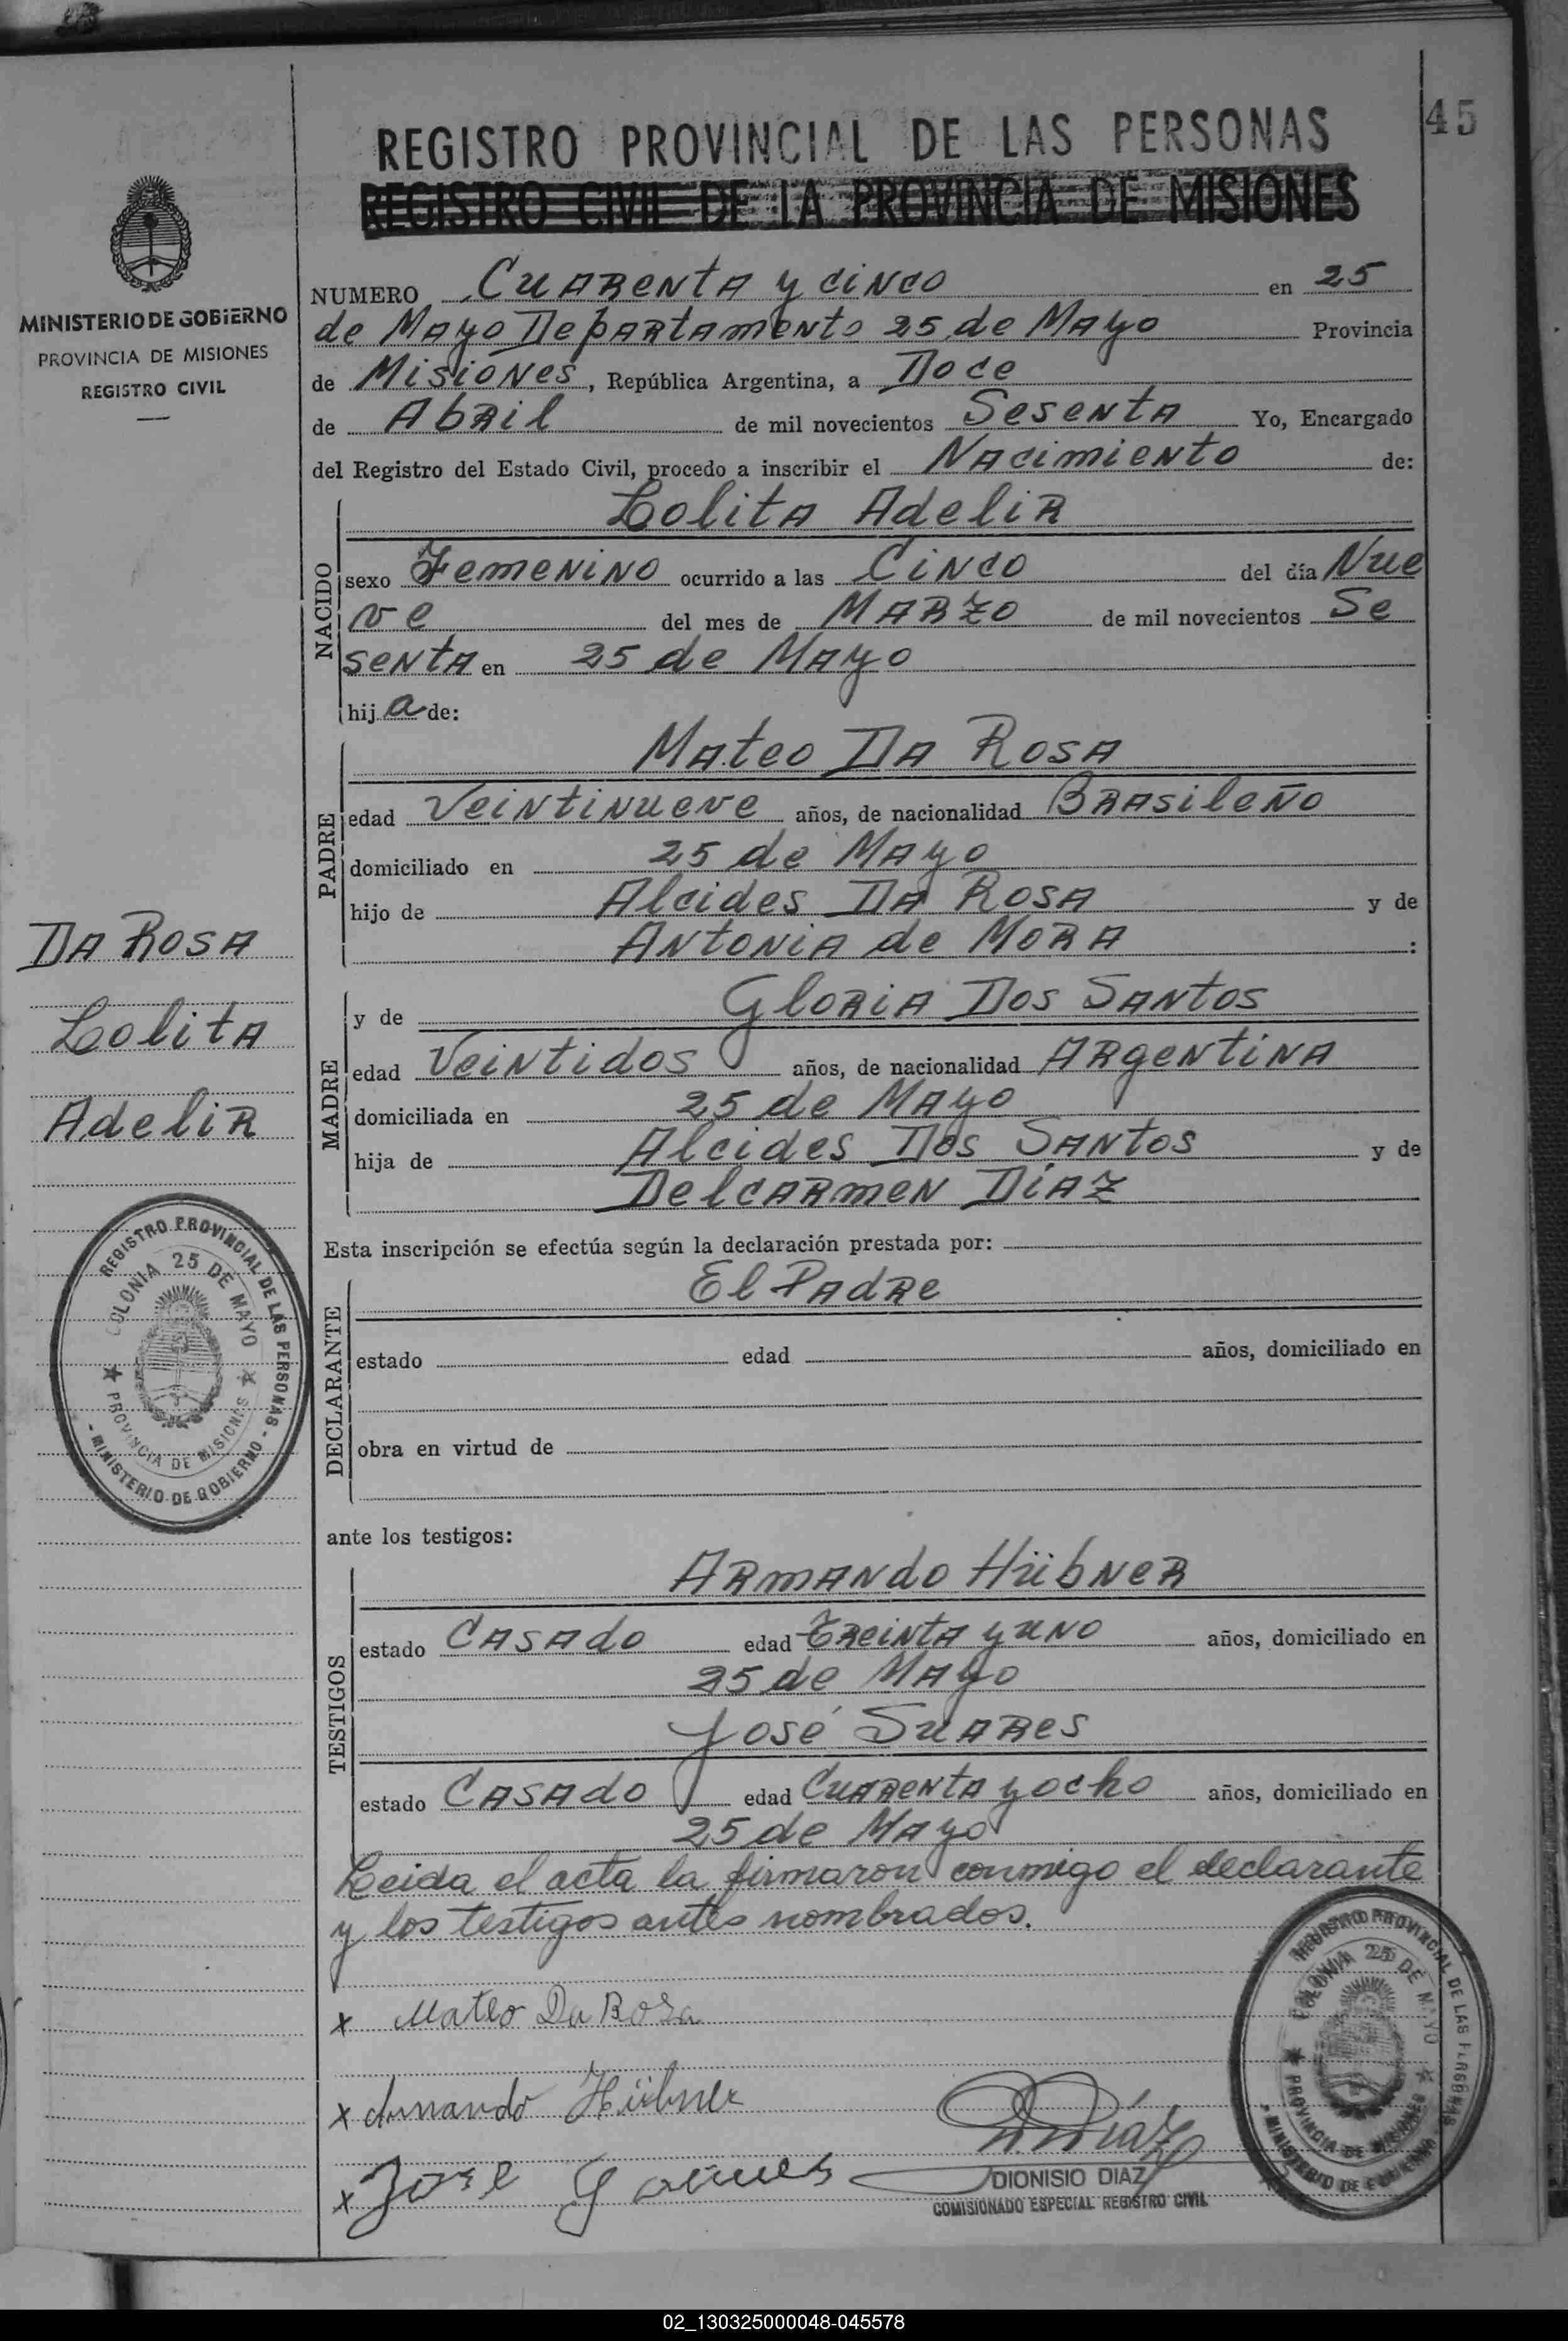 45
REGISTRO PROVINCIAL DE LAS PERSONAS
REGISTRO CIVIL DE LA PROVINCIA DE MISIONES
MINISTERIO DE GOBIERNO
PROVINCIA DE MISIONES
REGISTRO CIVIL
NUMERO Cuarenta y cinco en 25
de Mayo Departamento 25 de Mayo Provincia
de Misiones, República Argentina, a Doce
de Abril de mil novecientos Sesenta Yo, Encargado
del Registro del Estado Civil, procedo a inscribir el Nacimiento de:
NACIDO
Lolita Adelir
sexo Femenino ocurrido a las Cinco del día Nue
ve del mes de Marzo de mil novecientos Se
senta en 25 de Mayo
hija de:
PADRE
Mateo Da Rosa
edad Veintinueve años, de nacionalidad Brasileño
domiciliado en 25 de Mayo
hijo de Alcides Da Rosa y de
Antonia de Mora :
MADRE
y de Gloria Dos Santos
edad Veintidos años, de nacionalidad Argentina
domiciliada en 25 de Mayo
hija de Alcides Dos Santos y de
Delcarmen Díaz
Da Rosa
Lolita
Adelir
REGISTRO PROVINCIAL DE LAS PERSONAS
COLONIA 25 DE MAYO
PROVINCIA DE MISIONES
- MINISTERIO DE GOBIERNO -
Esta inscripción se efectúa según la declaración prestada por:
DECLARANTE
El Padre
estado edad años, domiciliado en
obra en virtud de
ante los testigos:
TESTIGOS
Armando Hübner
estado Casado edad Treinta y uno años, domiciliado en
25 de Mayo
José Suares
estado Casado edad Cuarenta y ocho años, domiciliado en
25 de Mayo
Leida el acta la firmaron conmigo el declarante
y los testigos antes nombrados.
x Mateo Da Rosa
x Armando Hübner
x Jose
D Díaz
DIONISIO DIAZ
COMISIONADO ESPECIAL REGISTRO CIVIL
REGISTRO PROVINCIAL DE LAS PERSONAS
COLONIA 25 DE MAYO
PROVINCIA DE MISIONES
- MINISTERIO DE GOBIERNO -
02_130325000048-045578